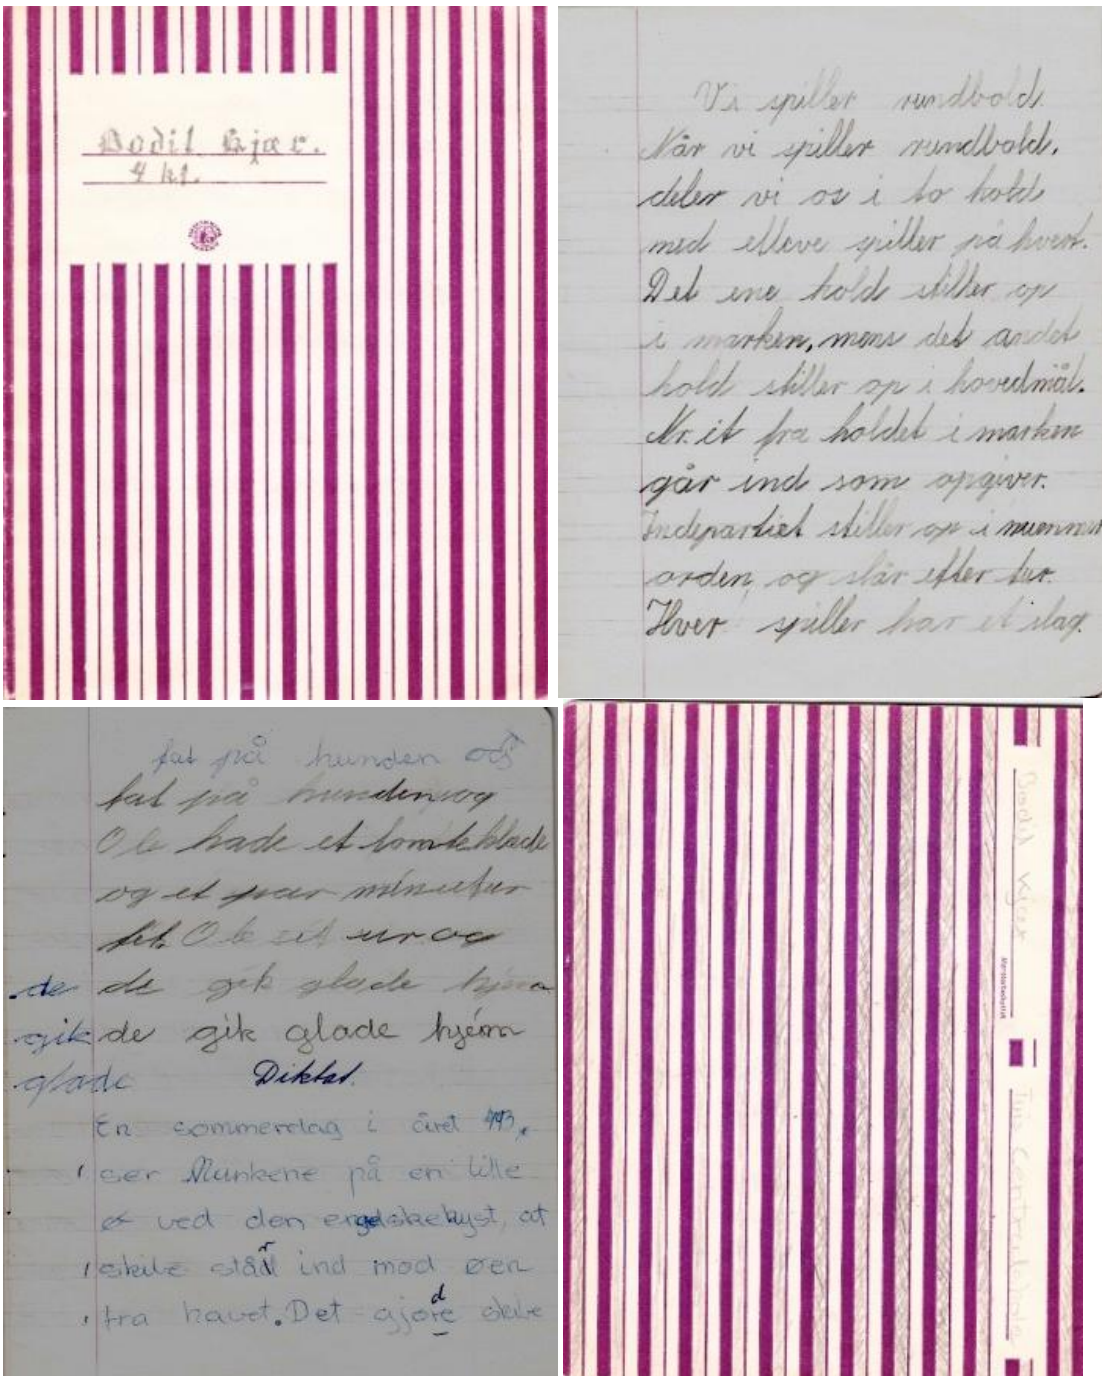 Bodil Kjær.
4 kl.
Vi spiller rundbold.
Når vi spiller rundbold,
deler vi os i to hold
med elleve spiller på hvert.
Det ene hold stiller op
i marken, mens det andet
hold stiller op i hovedmål.
Nr. et fra holdet i marken
går ind som opgiver.
Indepartiet stiller op i nummer
orden, og slår efter tur.
Hver spiller har et slag.
fat på hunden og
fat på hunden, og
Ole hade et tomteklade
og et par minutur
fik Ole sit ur og
de de gik glade hjem
gik de gik glade hjem
glade Diktat.
En sommerdag i året 793,
ser Munkene på en lille
ø ved den engelskekyst, at
skibe står ind mod øen
fra havet. Det gjorde skibe
Bodil Kjær
Tim